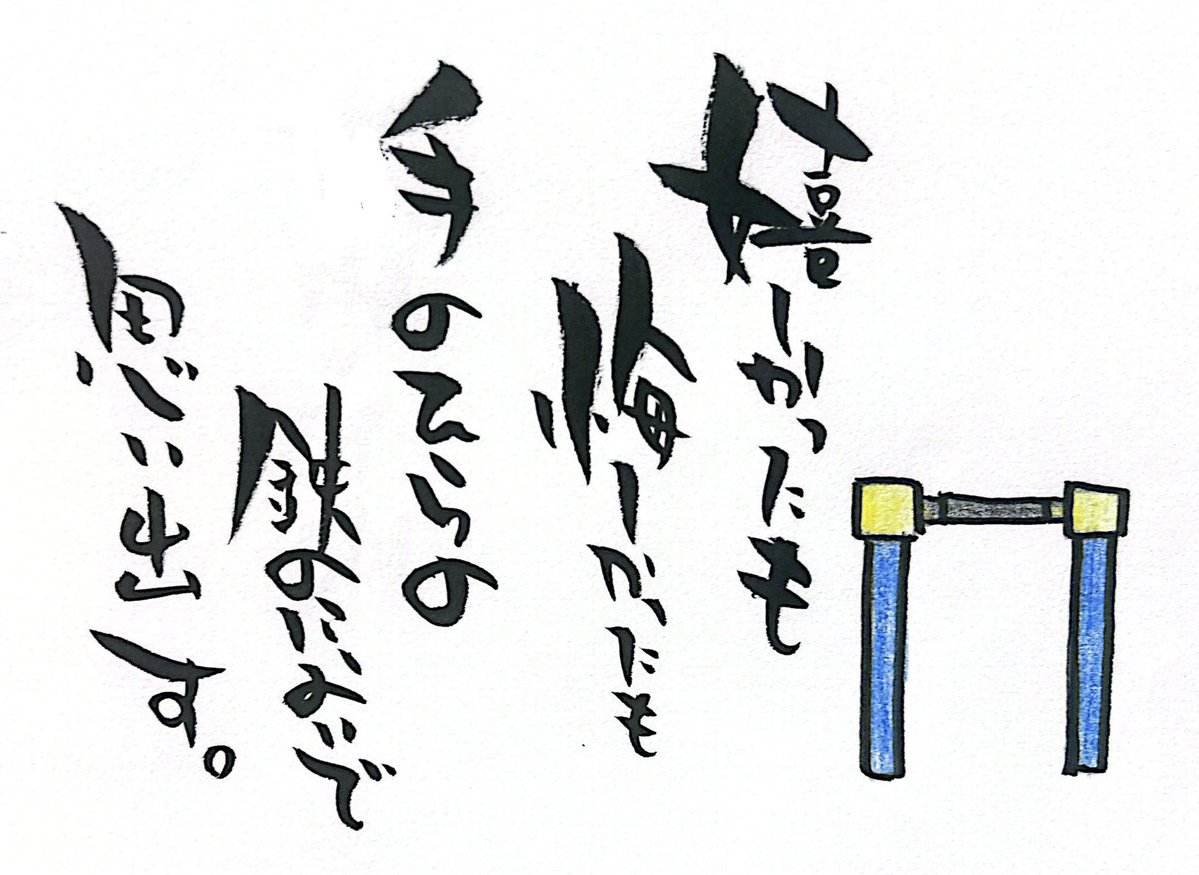 嬉しかったも
悔しかったも
手のひらの
鉄のにおいで
思い出す。